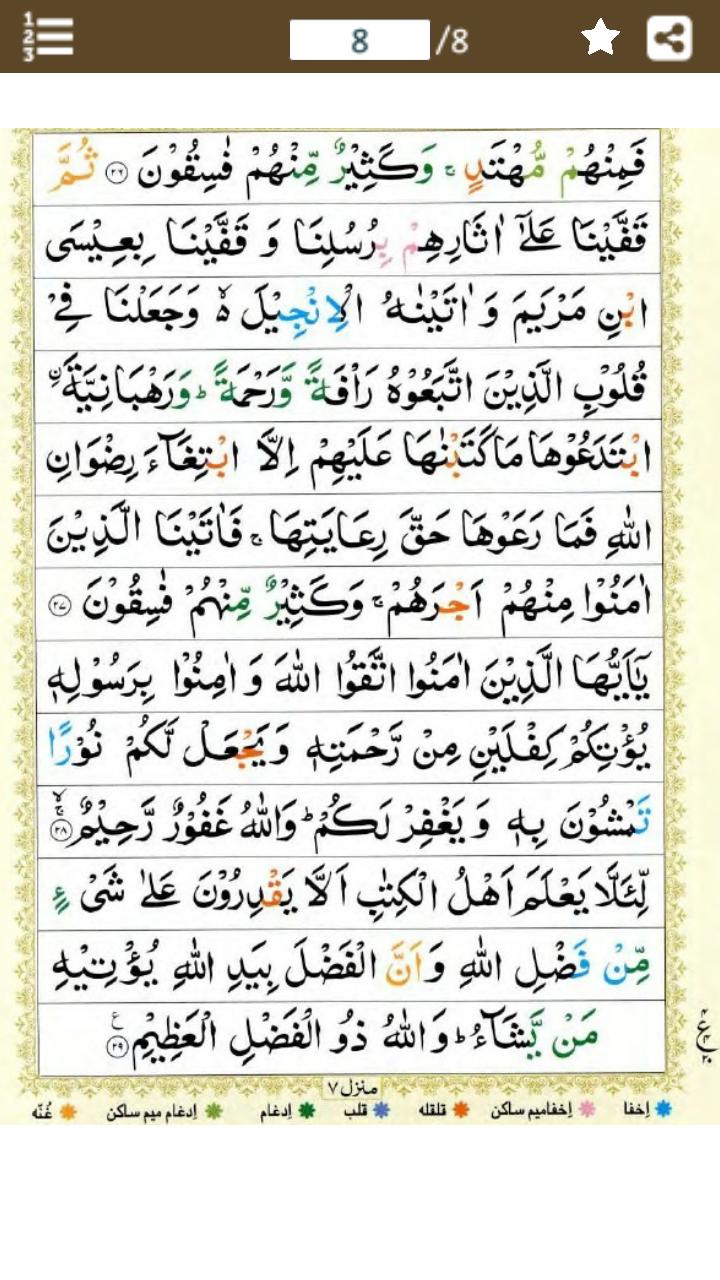 8 /8
فَمِنْهُمْ مُّهْتَدٍ ۚ وَكَثِيْرٌ مِّنْهُمْ فٰسِقُوْنَ ﴿۲۶﴾ ثُمَّ
قَفَّيْنَا عَلٰٓى اٰثَارِهِمْ بِرُسُلِنَا وَ قَفَّيْنَا بِعِيْسَى
ابْنِ مَرْيَمَ وَ اٰتَيْنٰهُ الْاِنْجِيْلَ ۙ۬ وَجَعَلْنَا فِيْ
قُلُوْبِ الَّذِيْنَ اتَّبَعُوْهُ رَاْفَةً وَّرَحْمَةً ؕ وَرَهْبَانِيَّةَ ۨ
ابْتَدَعُوْهَا مَا كَتَبْنٰهَا عَلَيْهِمْ اِلَّا ابْتِغَآءَ رِضْوَانِ
اللّٰهِ فَمَا رَعَوْهَا حَقَّ رِعَايَتِهَا ۚ فَاٰتَيْنَا الَّذِيْنَ
اٰمَنُوْا مِنْهُمْ اَجْرَهُمْ ۚ وَكَثِيْرٌ مِّنْهُمْ فٰسِقُوْنَ ﴿۲۷﴾
يٰۤاَيُّهَا الَّذِيْنَ اٰمَنُوا اتَّقُوا اللّٰهَ وَ اٰمِنُوْا بِرَسُوْلِهٖ
يُؤْتِكُمْ كِفْلَيْنِ مِنْ رَّحْمَتِهٖ وَيَجْعَلْ لَّكُمْ نُوْرًا
تَمْشُوْنَ بِهٖ وَ يَغْفِرْ لَكُمْ ؕ وَاللّٰهُ غَفُوْرٌ رَّحِيْمٌ ﴿۲۸﴾
لِّئَلَّا يَعْلَمَ اَهْلُ الْكِتٰبِ اَلَّا يَقْدِرُوْنَ عَلٰى شَيْءٍ
مِّنْ فَضْلِ اللّٰهِ وَ اَنَّ الْفَضْلَ بِيَدِ اللّٰهِ يُؤْتِيْهِ
مَنْ يَّشَآءُ ؕ وَاللّٰهُ ذُو الْفَضْلِ الْعَظِيْمِ ﴿۲۹﴾
منزل ۷
اِخفا اِخفامیم ساکن قلقله قلب اِدغام اِدغام میم ساکن غُنّه